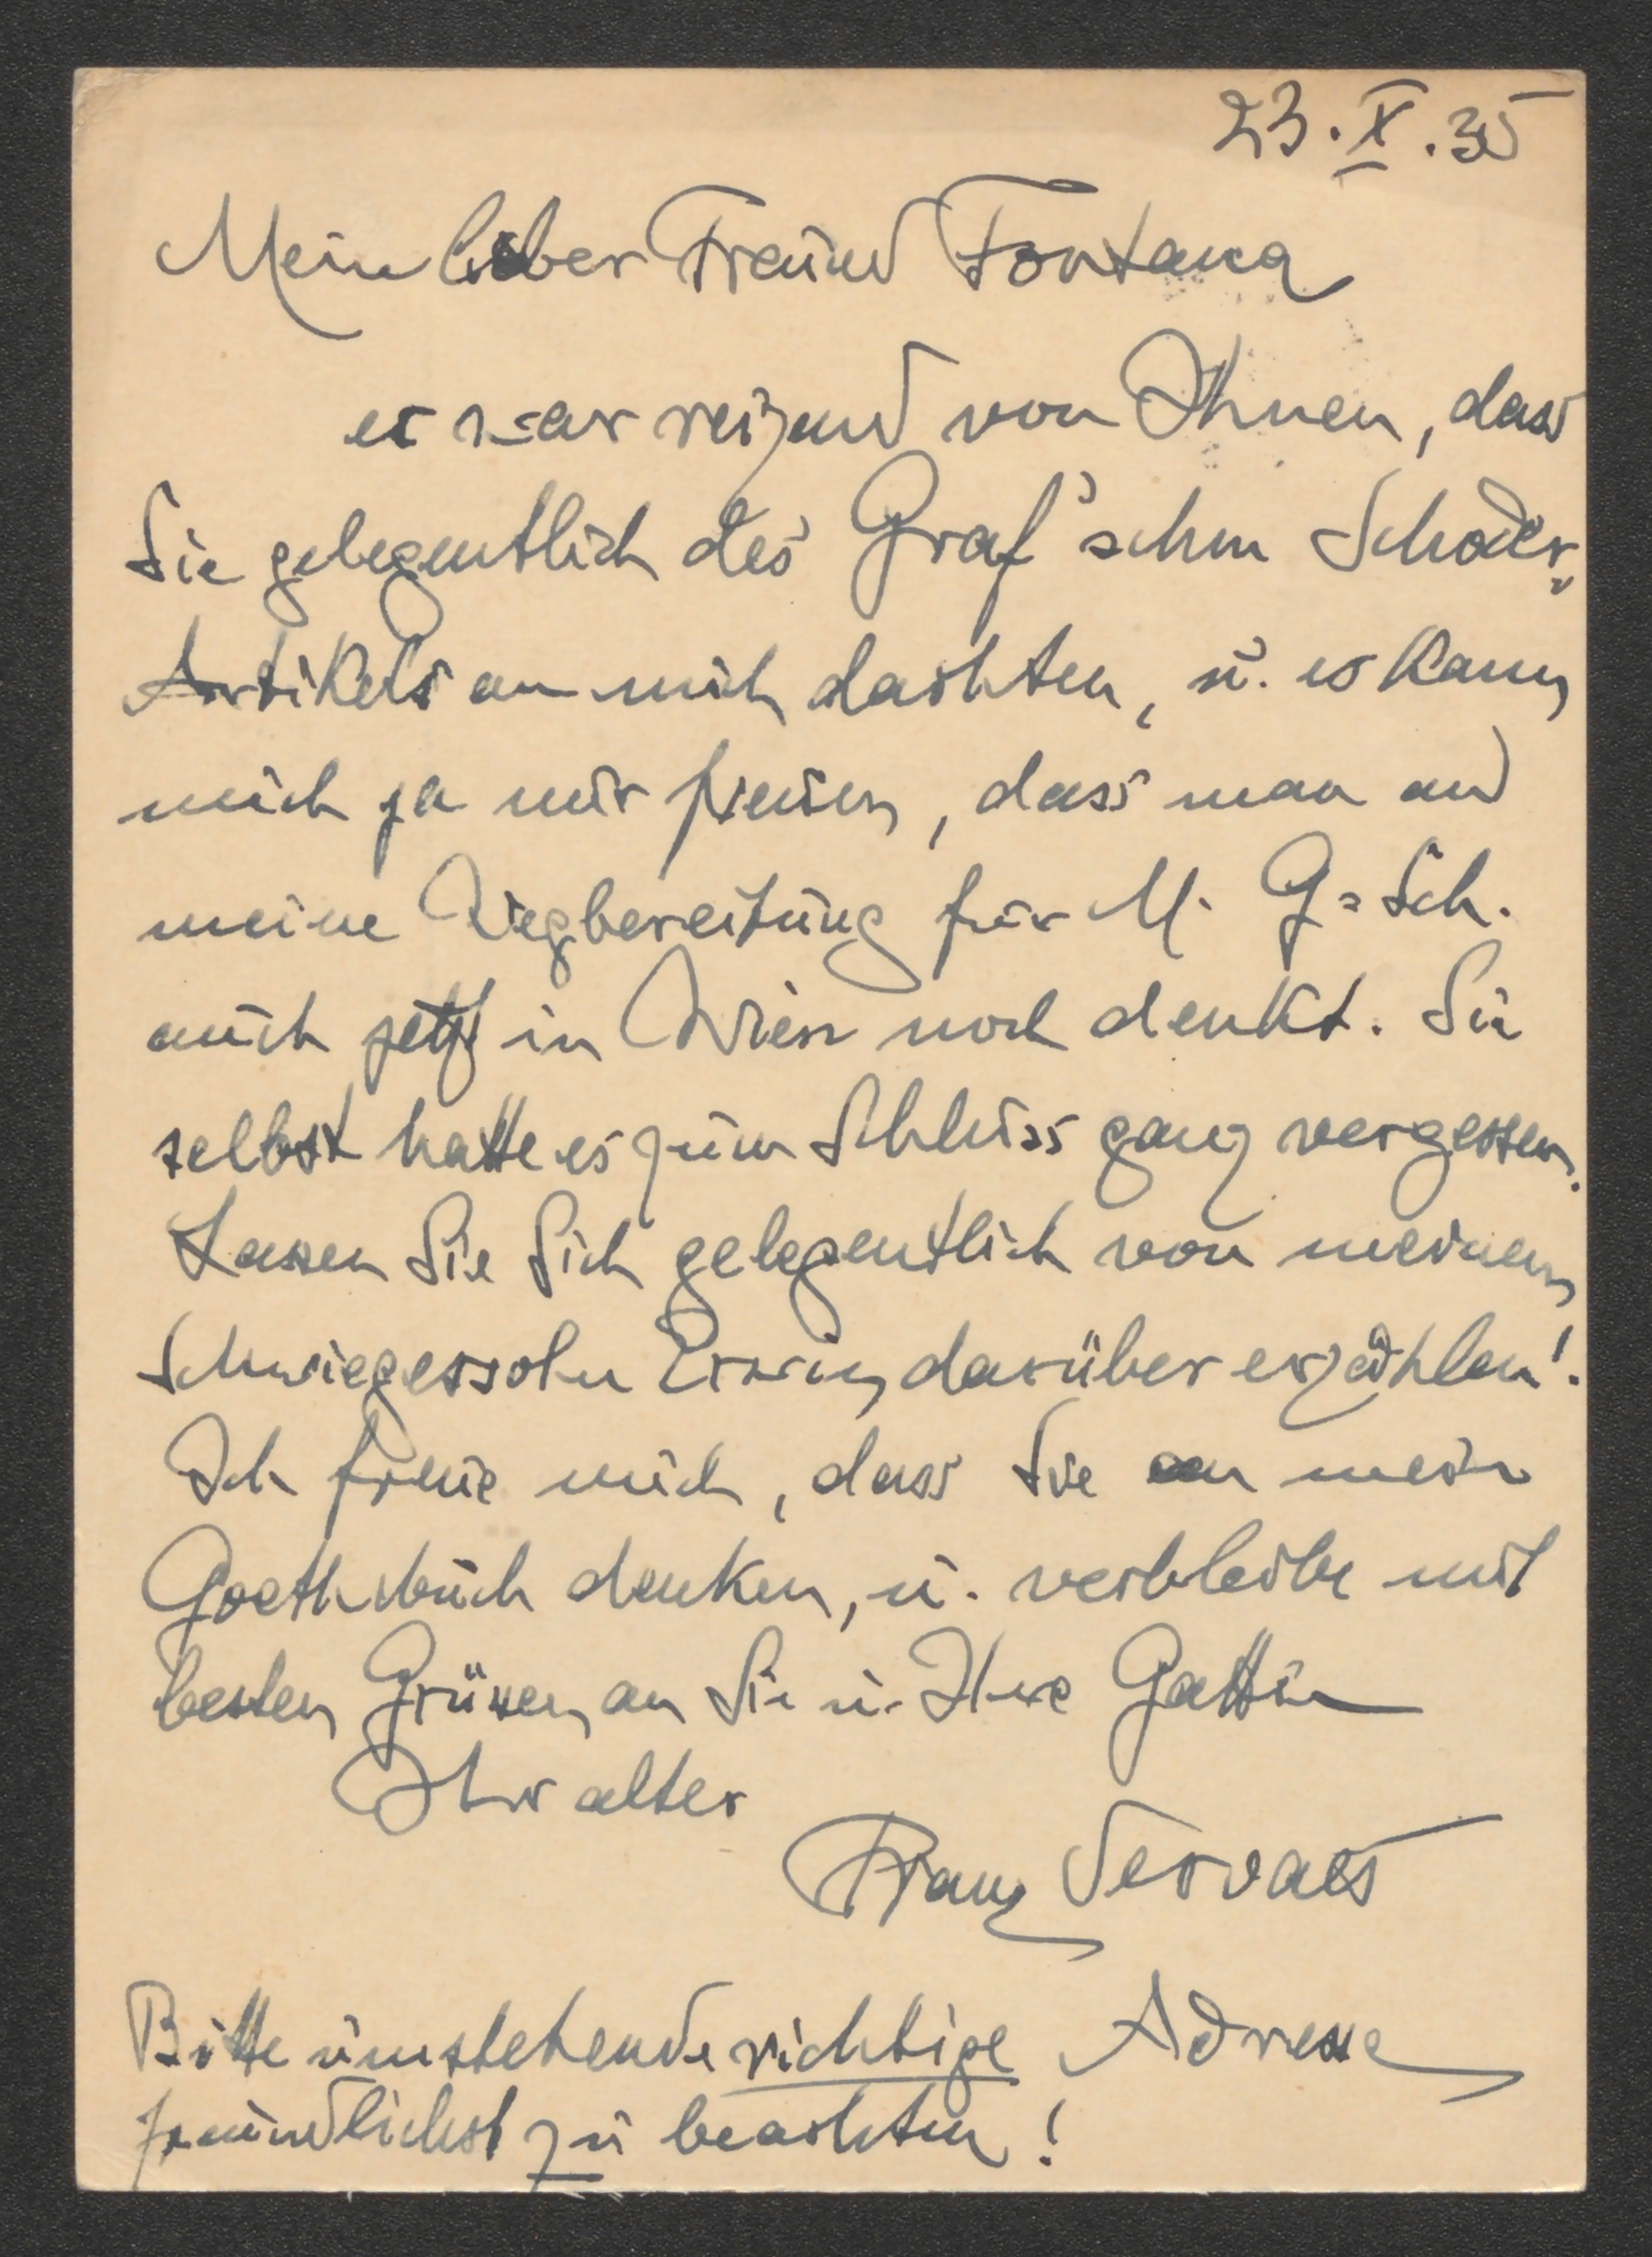 23.X.35
Mein lieber Freund Fontana
es war reizend von Ihnen, dass
Sie gelegentlich des Graf'schen Schoder-
Artikels an mich dachten, u. es kann
mich ja nur freuen, dass man an
meine Wegbereitung für M. G-Sch.
auch jetzt in Wien noch denkt. Sie
selbst hatte es zum Schluss ganz vergessen.
Lassen Sie Sich gelegentlich von meinem
Schwiegersohn Erwin darüber erzählen!
Ich freue mich, dass Sie an mein
Goethebuch denken, u. verbleibe mit
besten Grüssen an Sie u. Ihre Gattin
Ihr alter
Franz Servaes
Bitte umstehende richtige Adresse
freundlichst zu beachten!